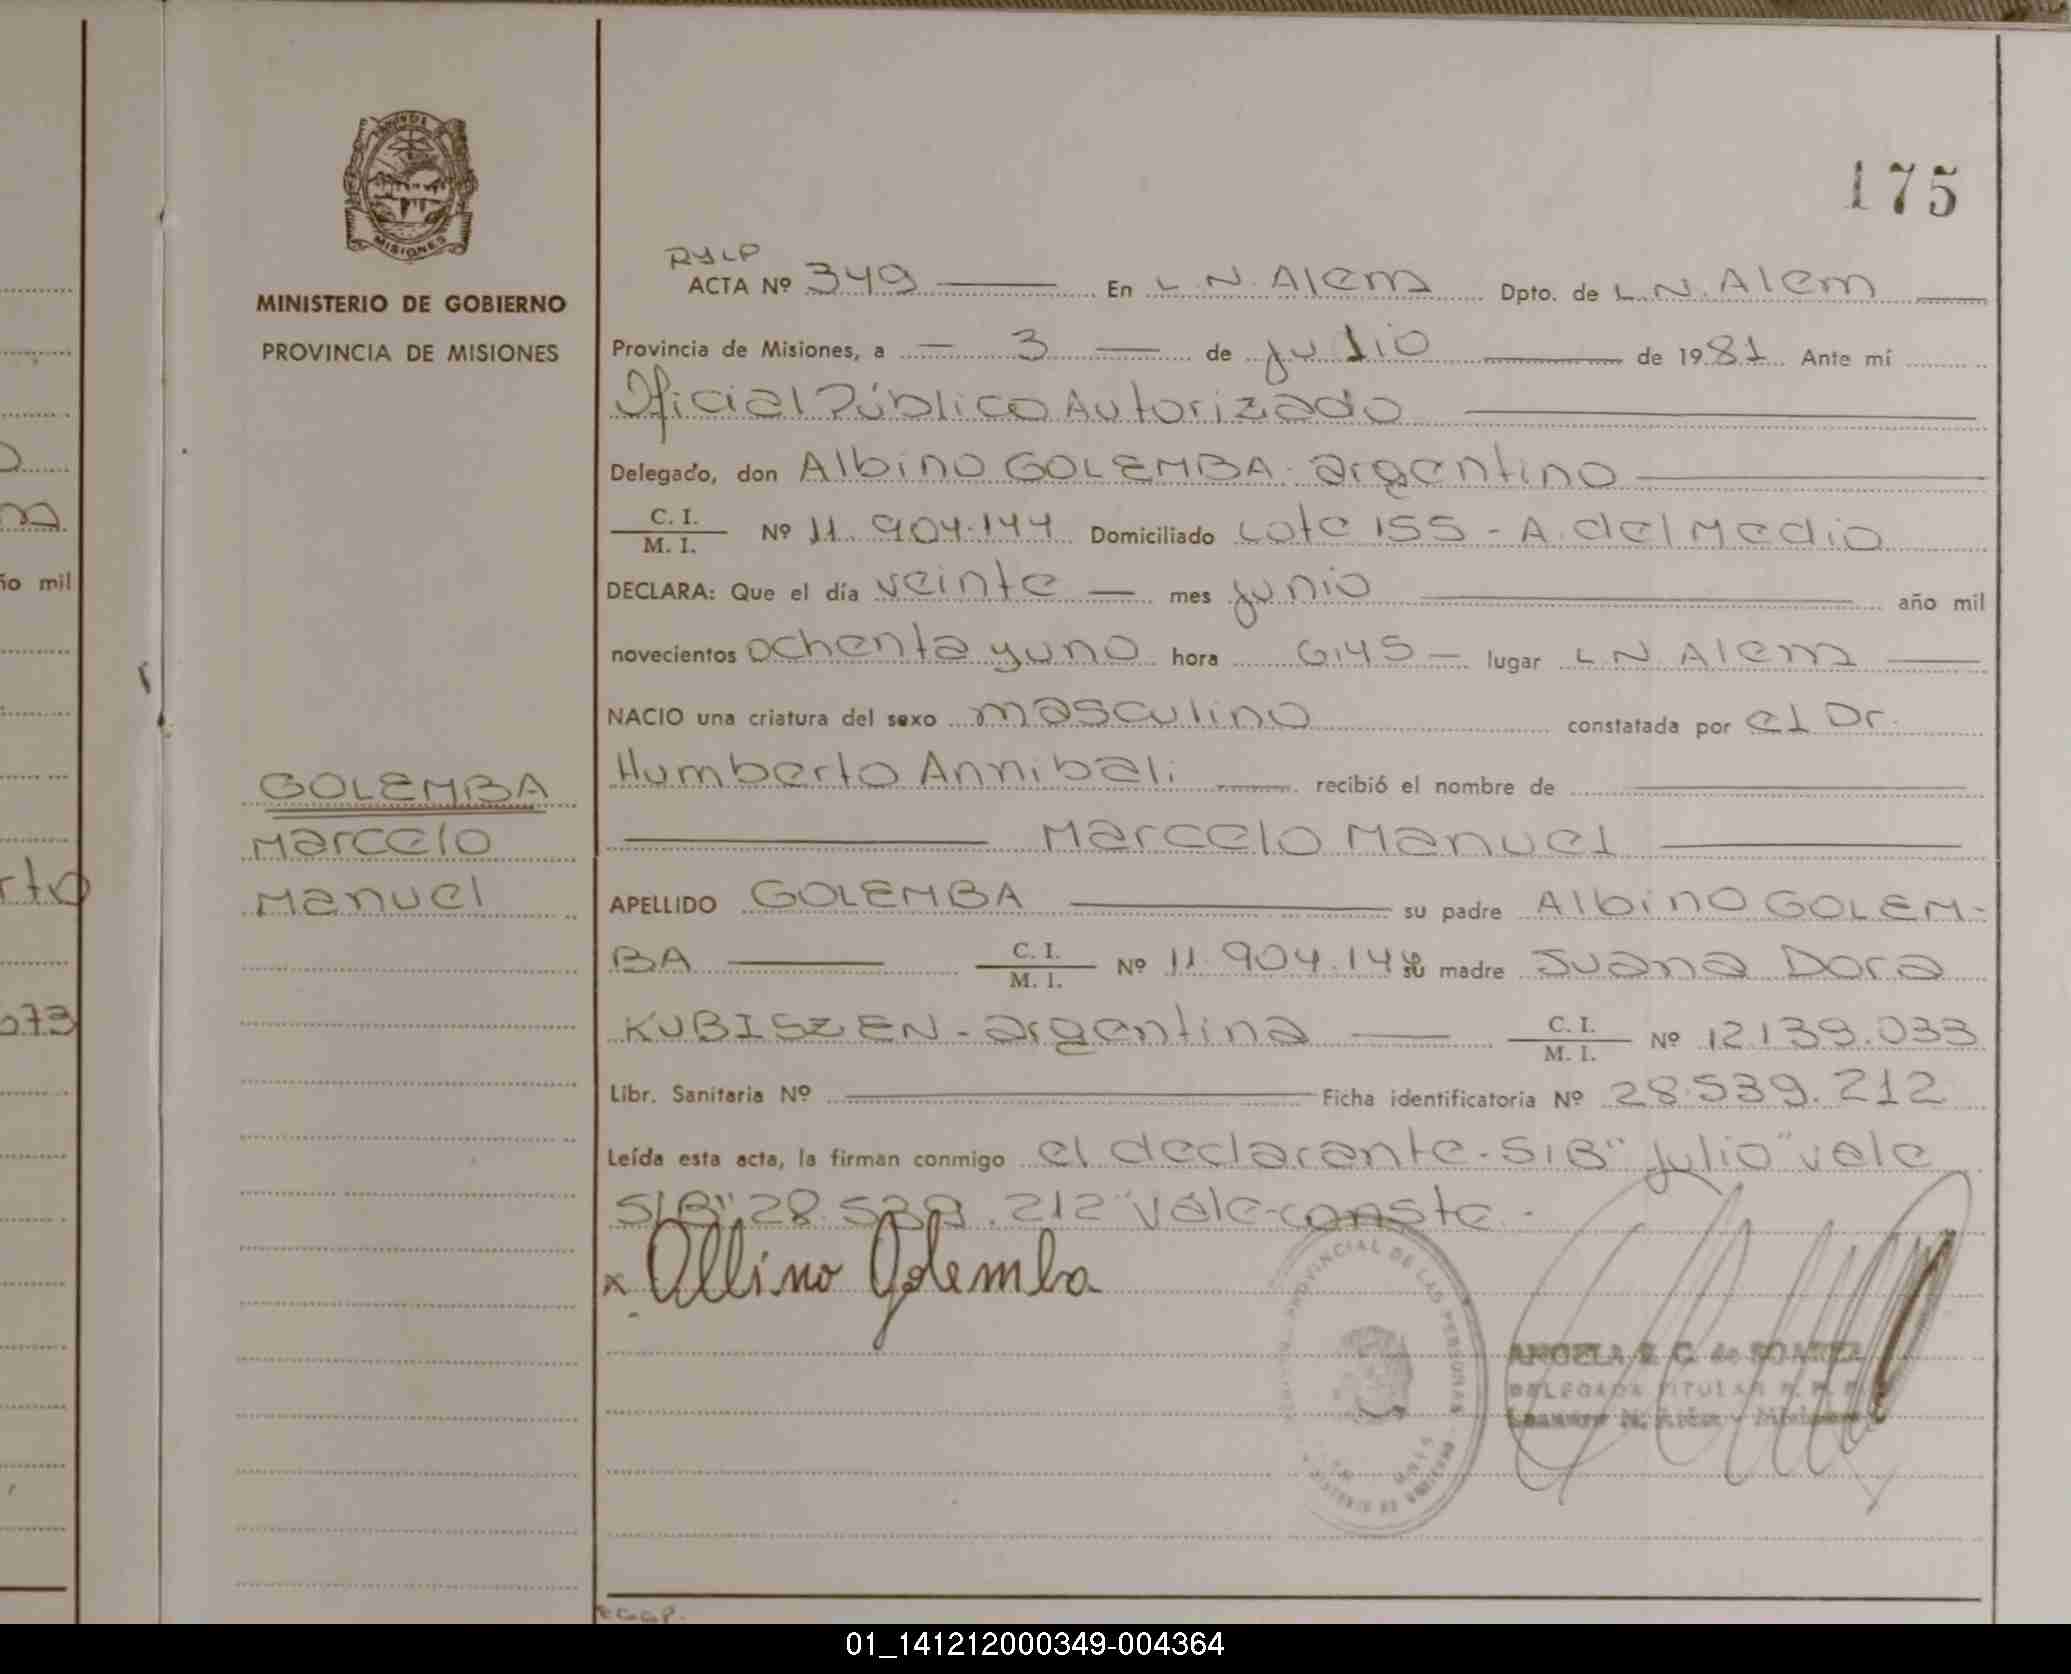 175
MISIONES
MINISTERIO DE GOBIERNO
PROVINCIA DE MISIONES
GOLEMBA
Marcelo
Manuel
RYLP
ACTA Nº 349 En L.N. Alem Dpto. de L.N. Alem
Provincia de Misiones, a - 3 - de julio de 1981. Ante mí
Oficial Público Autorizado
Delegado, don Albino GOLEMBA. argentino
C. I.
M. I. Nº 11.904.144 Domiciliado Lote 155 - A. del Medio
DECLARA: Que el día veinte mes junio año mil
novecientos ochenta y uno hora 6,45 lugar L N. Alem
NACIO una criatura del sexo masculino constatada por el Dr.
Humberto Annibali recibió el nombre de
Marcelo Manuel
APELLIDO GOLEMBA su padre Albino GOLEM-
BA C. I.
M. I. Nº 11.904.144 su madre Juana Dora
KUBISZEN - argentina C. I.
M. I. Nº 12.139.033
Libr. Sanitaria Nº Ficha identificatoria Nº 28.539.212
Leída esta acta, la firman conmigo el declarante. S/B "julio" vale
S/B "28.539.212" vale-conste.
x Albino Golemba
PROVINCIAL DE LAS PERSONAS
ANGELA R. C. de SOAREZ
DELEGADA TITULAR R. P. P.
Leandro N. Alem - Misiones
ño mil
rto
673
01_141212000349-004364